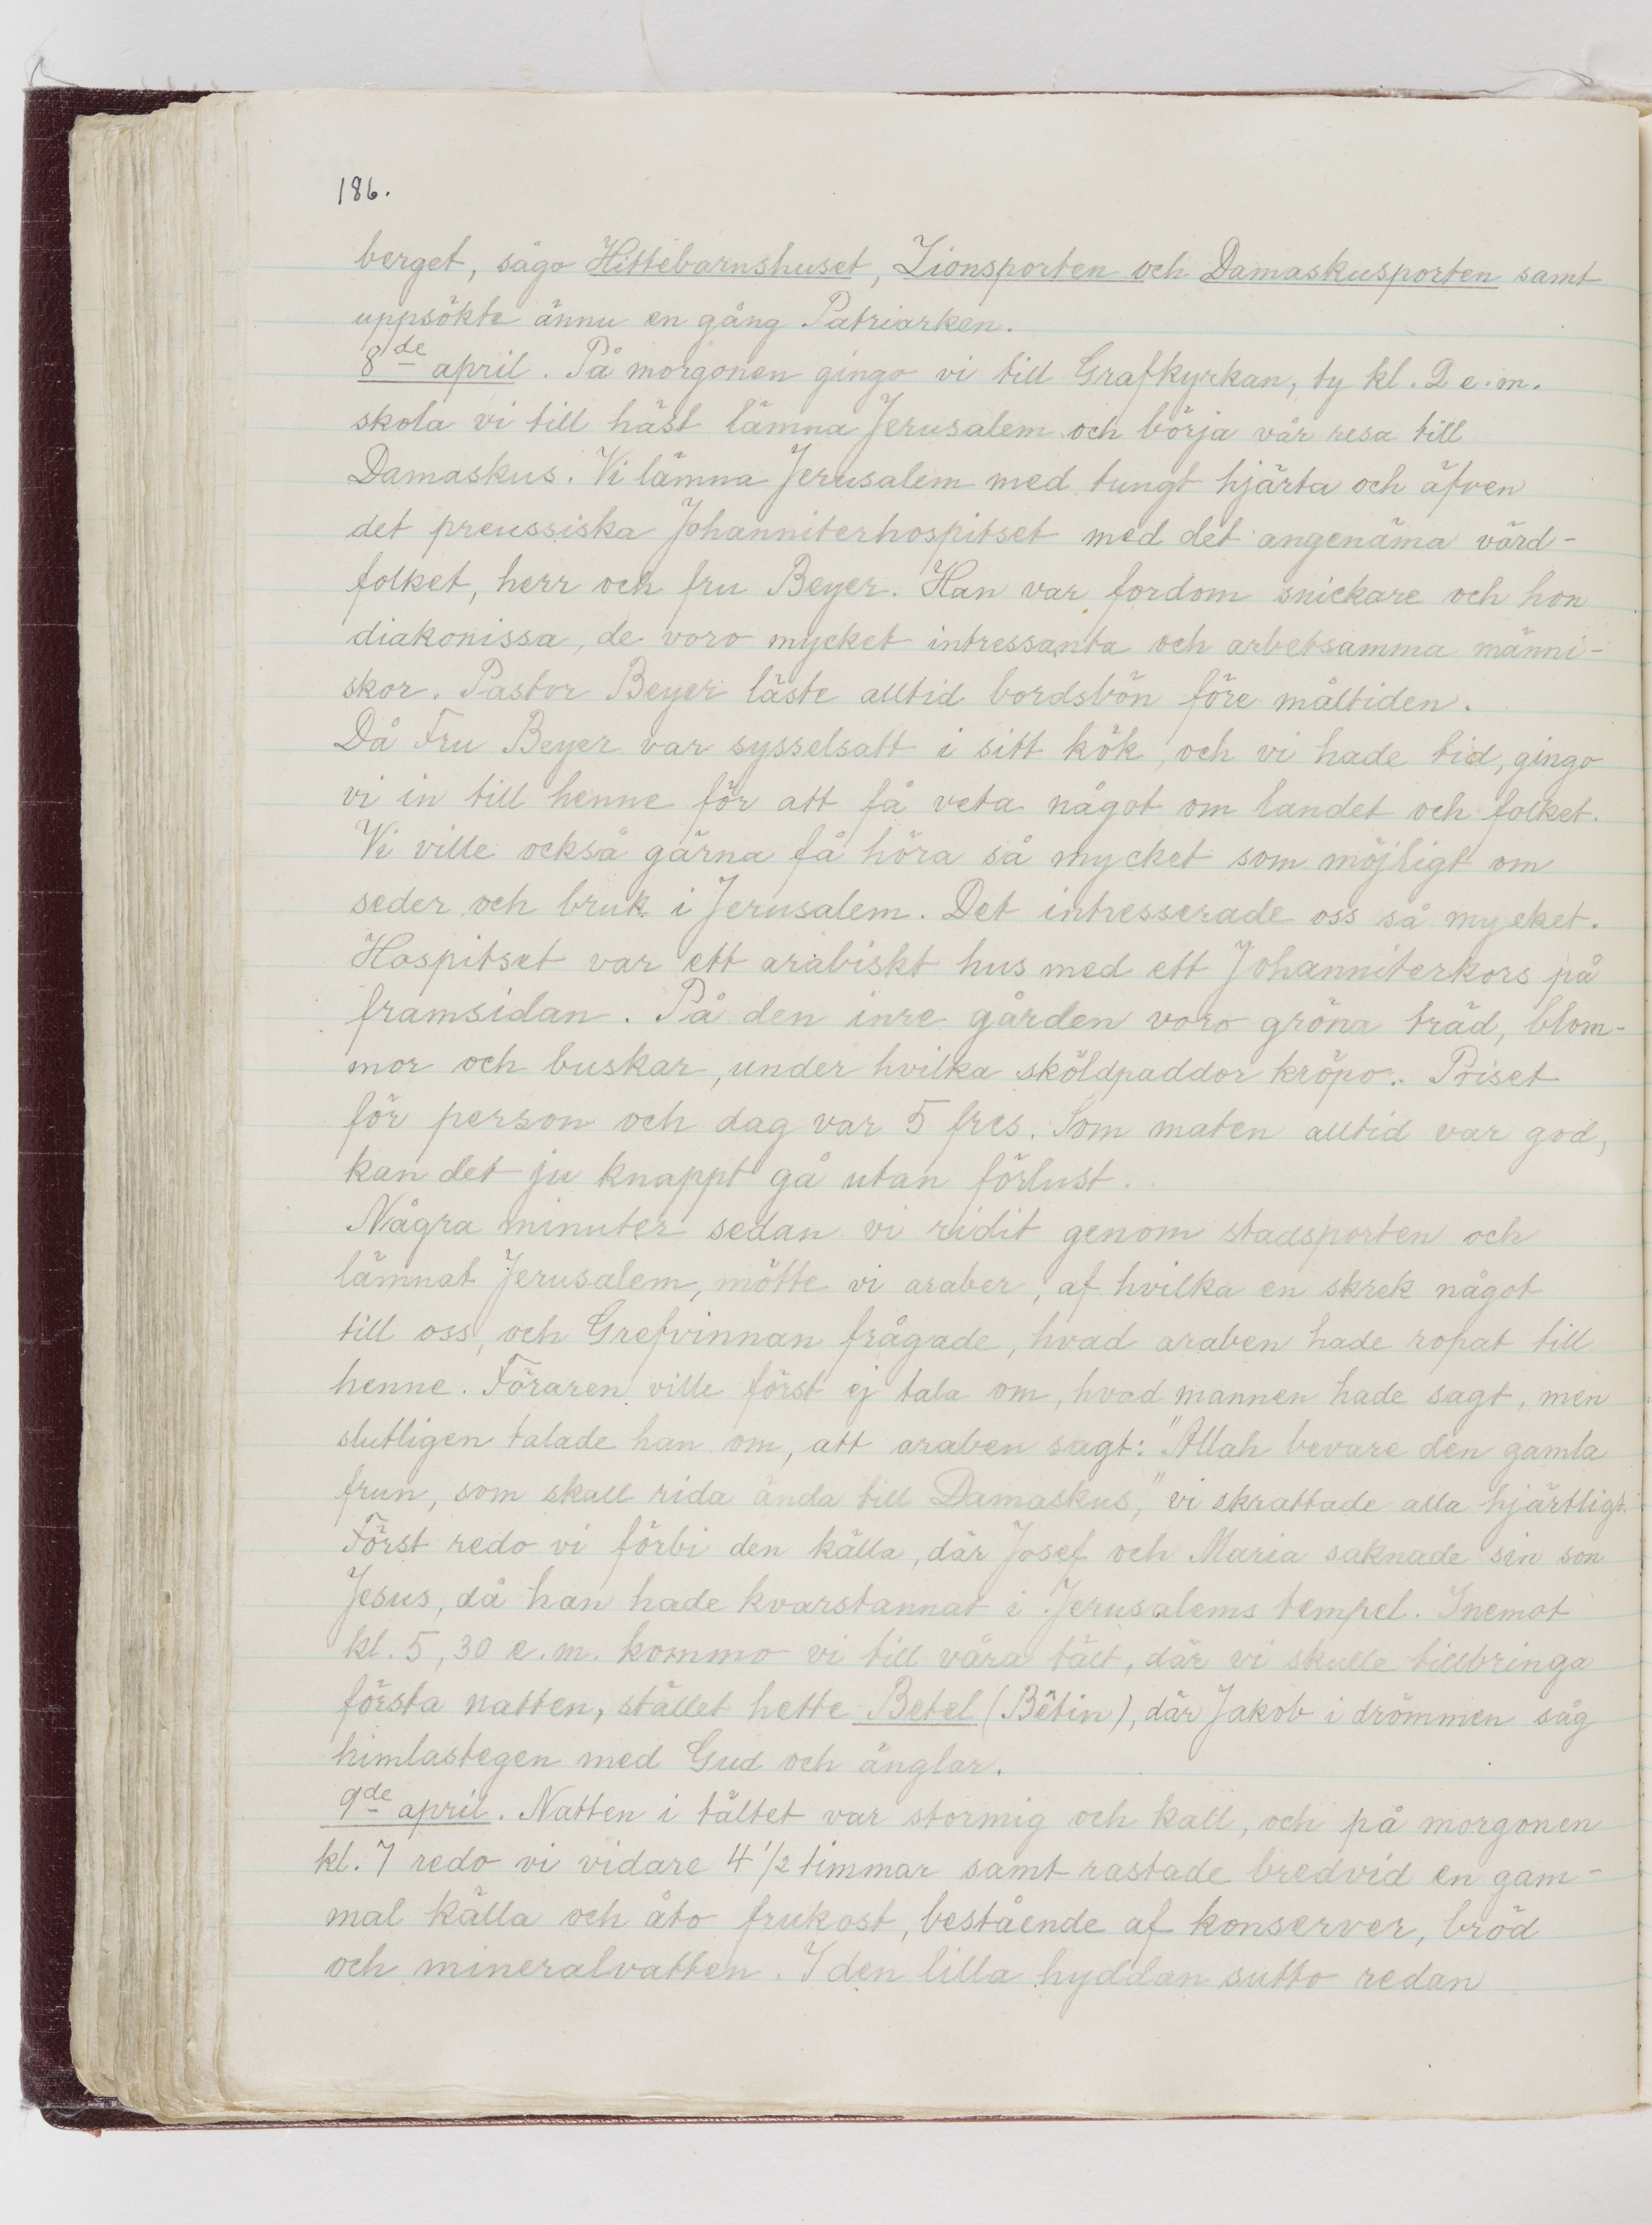 186.
berget, sågo Hittebarnshuset, Zionsporten och Damaskusporten samt
uppsökte ännu en gång Patriarken.
8de april. På morgonen gingo vi till Grafkyrkan, ty kl. 2 e.m.
skola vi till häst lämna Jerusalem och börja vår resa till
Damaskus. Vi lämna Jerusalem med tungt hjärta och äfven
det preussiska Johanniterhospitset med det angenäma värd-
folket, herr och fru Beyer. Han var fordom snickare och hon
diakonissa, de voro mycket intressanta och arbetsamma männi-
skor. Pastor Beyer läste alltid bordsbön före måltiden.
Då Fru Beyer var sysselsatt i sitt kök, och vi hade tid, gingo
vi in till henne för att få veta något om landet och folket.
Vi ville också gärna få höra så mycket som möjligt om
seder och bruk i Jerusalem. Det intresserade oss så mycket.
Hospitset var ett arabiskt hus med ett Johanniterkors på
framsidan. På den inre gården voro gröna träd, blom-
mor och buskar, under hvilka sköldpaddor kröpo. Priset
för person och dag var 5 frcs. Som maten alltid var god,
kan det ju knappt gå utan förlust.
Några minuter sedan vi ridit genom stadsporten och
lämnat Jerusalem, mötte vi araber, af hvilka en skrek något
till oss, och Grefvinnan frågade, hvad araben hade ropat till
henne. Föraren ville först ej tala om, hvad mannen hade sagt, men
slutligen talade han om, att araben sagt: "Allah bevare den gamla
frun, som skall rida ända till Damaskus," vi skrattade alla hjärtligt.
Först redo vi förbi den källa, där Josef och Maria saknade sin son
Jesus, då han hade kvarstannat i Jerusalems tempel. Inemot
kl. 5,30 e.m. kommo vi till våra tält, där vi skulle tillbringa
första natten, stället hette Betel (Bêtin), där Jakob i drömmen såg
himlastegen med Gud och änglar.
9de april. Natten i tältet var stormig och kall, och på morgonen
kl. 7 redo vi vidare 4 1/2 timmar samt rastade bredvid en gam-
mal källa och åto frukost, bestående af konserver, bröd
och mineralvatten. I den lilla hyddan sutto redan